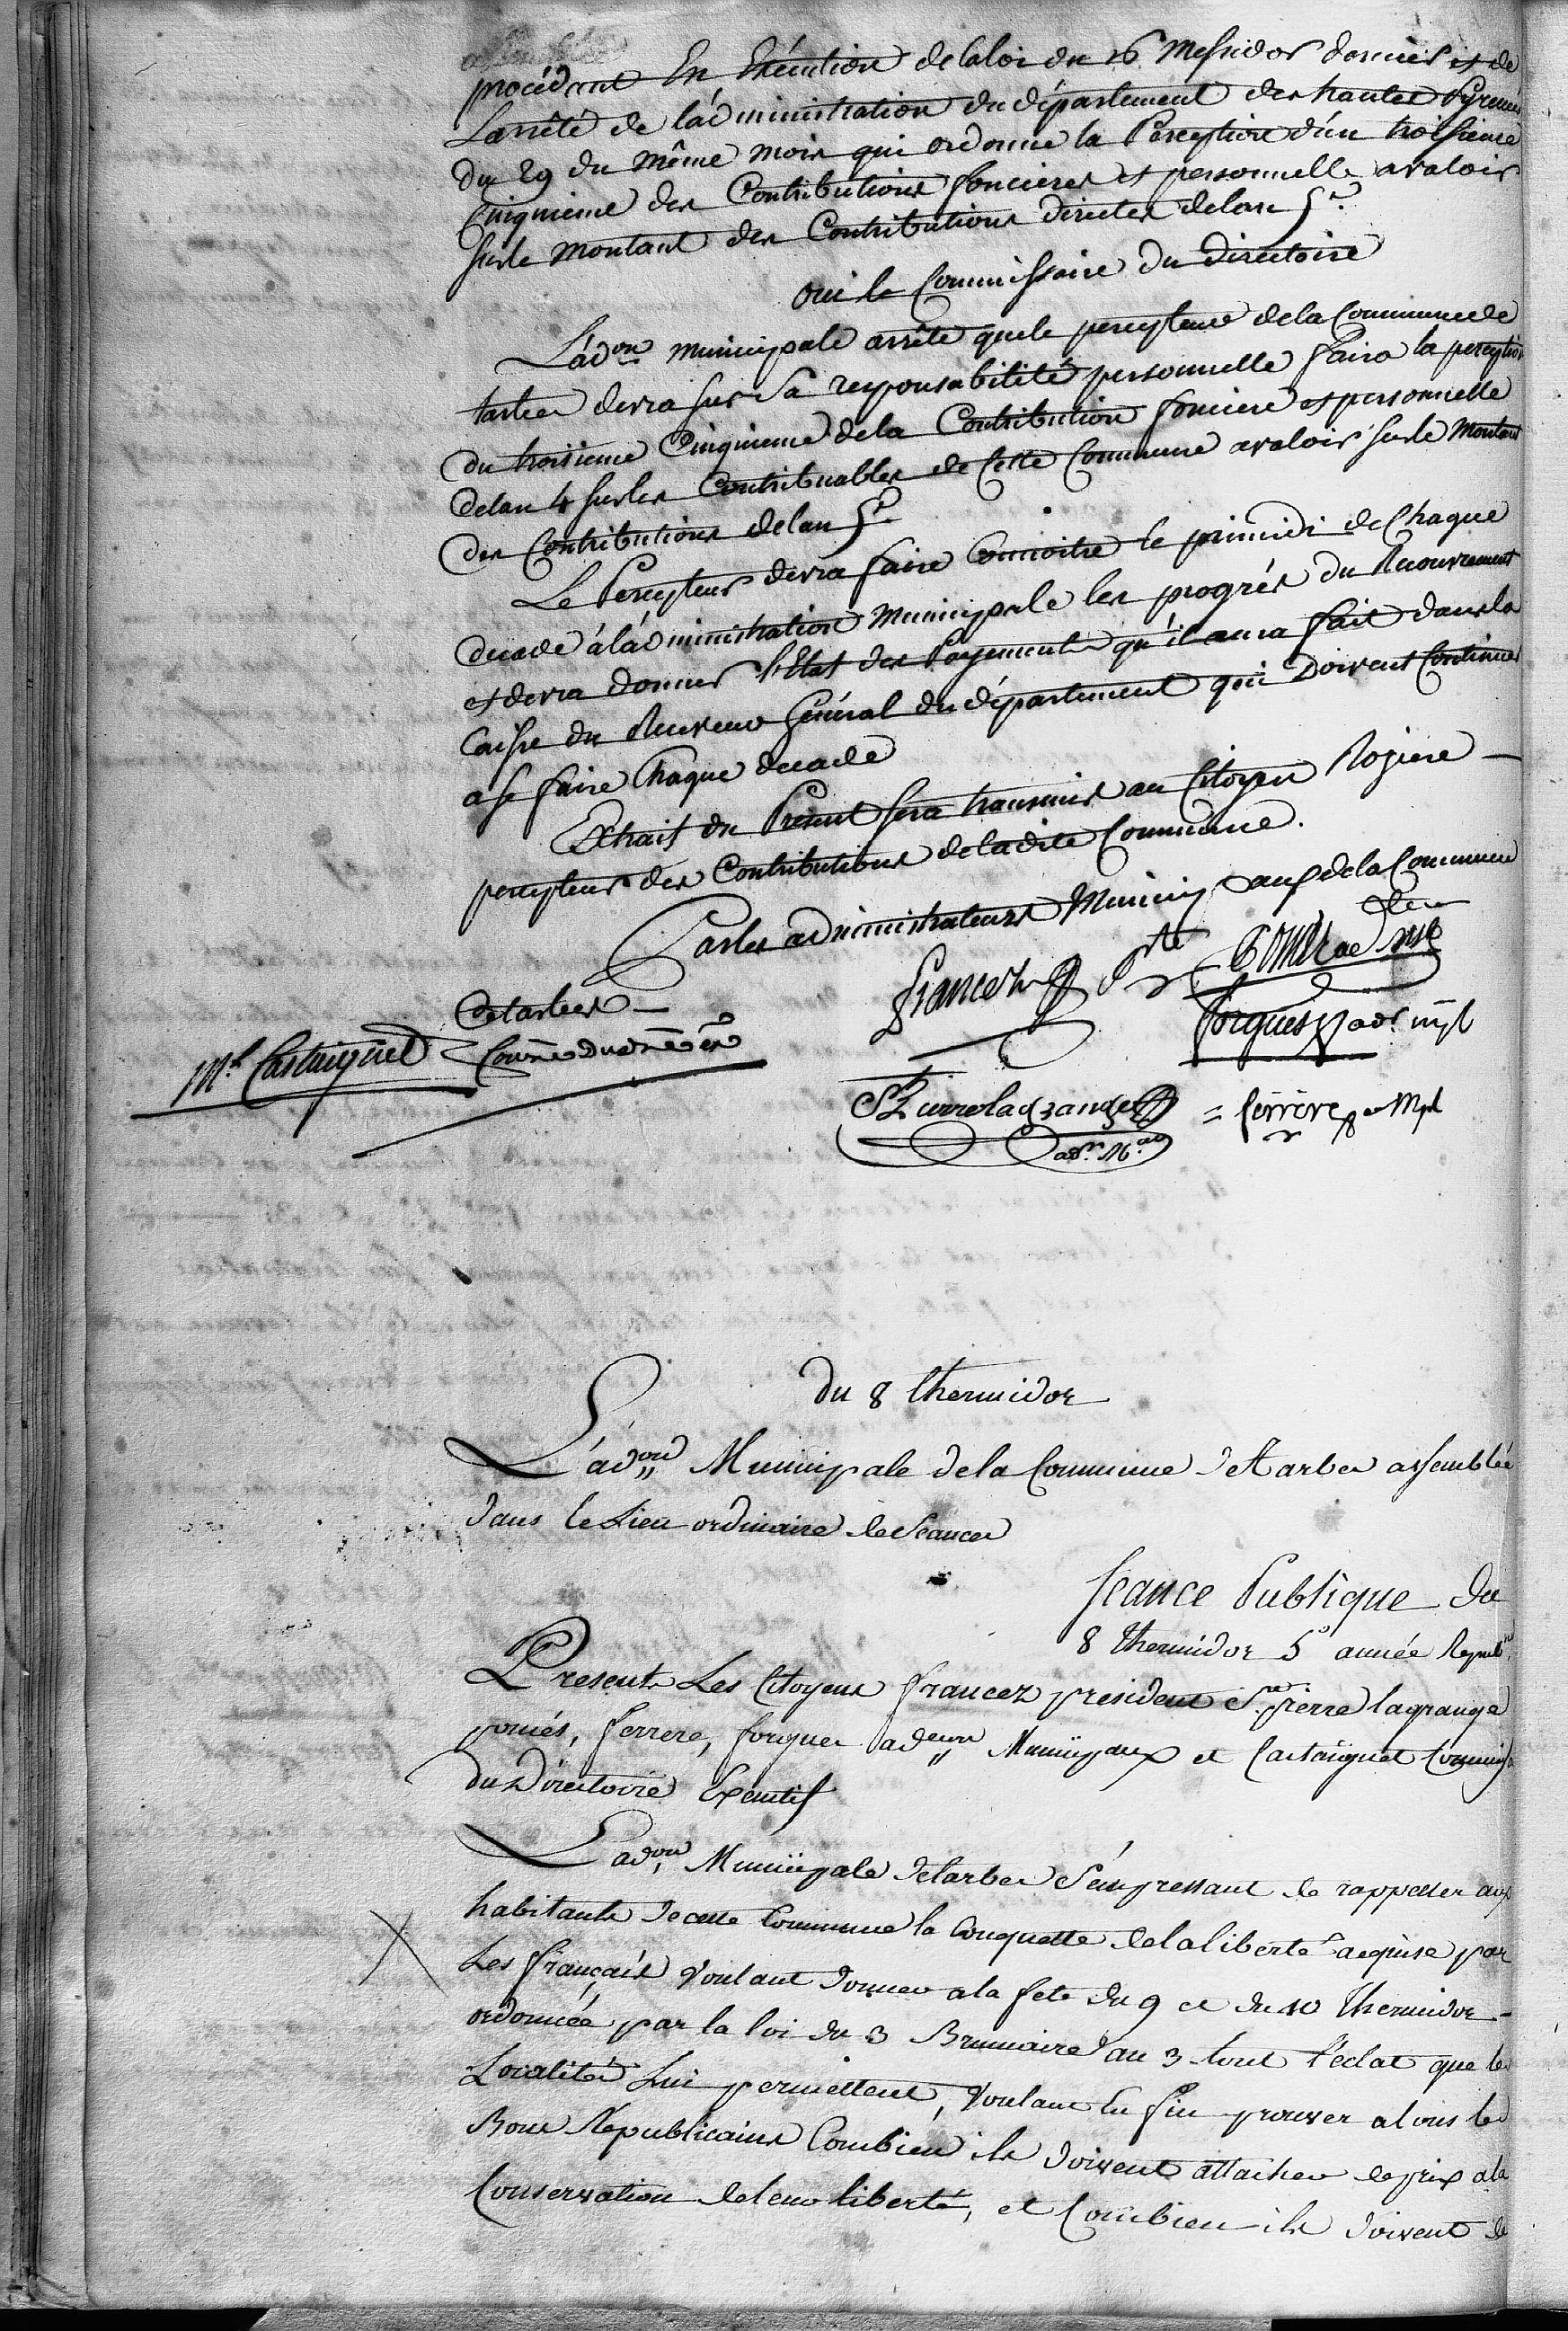 procédant En Exécution de la loi du 16 Messidor dernier et de
L'arrêté de l'administration du département des hautes Pyrenées
du 29 du même mois qui ordonne la Perception d'un troisieme
Cinquieme des Contributions foncieres et personnelle avaloir
sur le montant des Contributions directes de lan 5e.
oui le Commissaire du Directoire
L'adon municipale arrête que le percepteur de la Commune de
tarbes devra sur Sa responsabilité personnelle faire la perception
du troisieme Cinquieme de la Contribution fonciere et personnelle
de lan 4 sur les Contribuables de Cette Commune avaloir sur le Montant
des Contributions de lan 5e
Le Percepteur devra faire Connoitre le primidi de Chaque
decade à l'administration Municipale les progrès du Recouvrement
et devra donner l'Etat des Payements qu'il aura fait dans la
Caisse du Receveur Général du département qui Doivent Continuer
a se faire Chaque decade
Extrait du Présent sera transmis au Citoyen Roziere —
percepteur des Contributions de la dite Commune.
Par les administrateurs Municipaux de la Commune
de tarbes —
francez Pdt
forgues adr mpl
Ml Castaignet
St pierre lagrange
adr. M.al
= ferrere a Mpl
du 8 thermidor
L'adon Municipale de la Commune de tarbes assemblée
dans le Lieu ordinaire de Seances
seance Publique du
8 thermidor 5e année Republne
Presents Les Citoyens francez president St. pierre lagrange
pomés, ferrere, forgues adeurs Municipaux et Castaignet Commiss
du Directoire Executif
L'adon Municipale de tarbes S'empressant de rappeller aux
habitants de cette Commune la Conquette de la liberté acquise par
Les français Voulant donner a la fete du 9 et du 10 thermidor -
ordonnée par la loi du 3 Brumaire an 3 tout l'eclat que les
Localités Lui permettent, Voulant En fin prouver a tous les
Bons Républicains Combien ils doivent attacher de prix a la
Conservation de leur liberté, et Combien ils doivent de